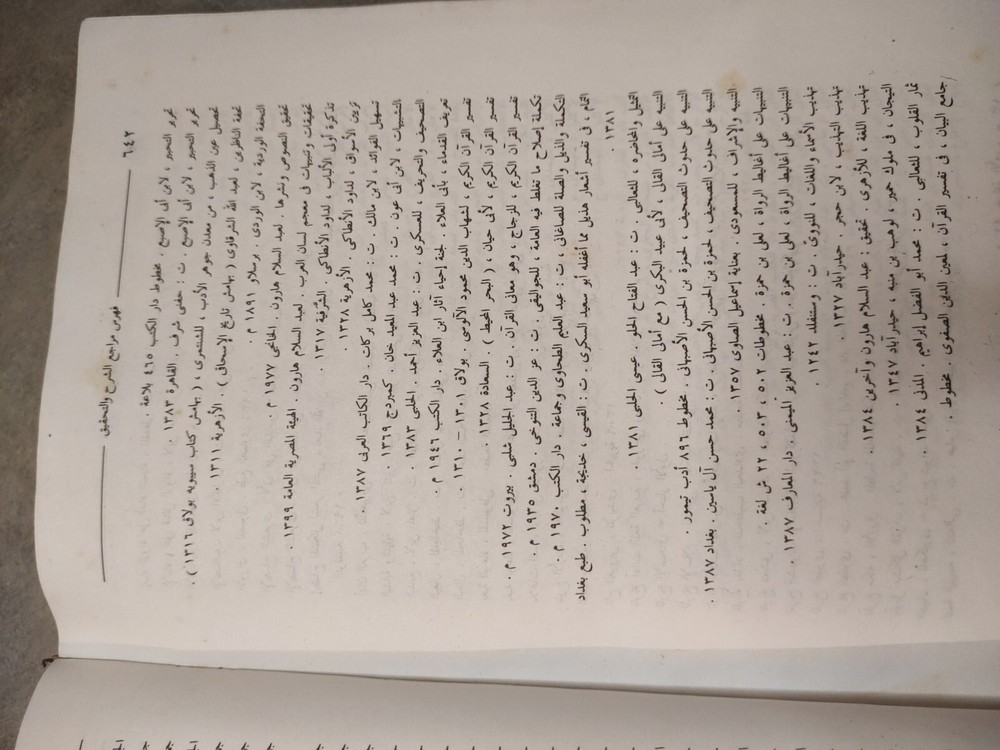 ٦٤٢
فهرس مراجع الشرح والتحقيق
تحرير التحبير ، لابن أبى الإصبع . مخطوط دار الكتب ٤٦٥ بلاغة .
تحرير التحبير ، لابن أبى الإصبع . ت : حفنى شرف . القاهرة ١٣٨٣ .
تحصيل عين الذهب ، من معدن جوهر الأدب ، للشنتمرى ، ( بهامش كتاب سيبويه بولاق ١٣١٦ ) .
تحفة الناظرين ، لعبد الله الشرقاوى ( بهامش تاريخ الإسحاقى ) . الأزهرية ١٣١١ .
التحفة الوردية ، لابن الوردى . برسلاو ١٨٩١ م .
تحقيق النصوص ونشرها . لعبد السلام هارون . الخانجى ١٩٧٧ م .
تحقيقات وتنبيهات فى معجم لسان العرب . لعبد السلام هارون . الهيئة المصرية العامة ١٣٩٩ .
تذكرة أولى الألباب ، لداود الأنطاكى . الشرفية ١٣١٧ .
تزيين الأسواق ، لداود الأنطاكى . الأزهرية ١٣٢٨ .
تسهيل الفوائد ، لابن مالك . ت : محمد كامل بركات . دار الكاتب العربى ١٣٨٧ .
التشبيهات ، لابن أبى عون . ت : محمد عبد المعيد خان . كمبردج ١٣٦٩ .
التصحيف والتحريف ، للعسكرى . ت : عبد العزيز أحمد . الحلبى ١٣٨٣ .
تعريف القدماء ، بأبى العلاء . لجنة إحياء آثار أبى العلاء . دار الكتب ١٩٤٦ م .
تفسير القرآن الكريم ، لشهاب الدين محمود الألوسى . بولاق ١٣٠١ – ١٣١٠ .
تفسير القرآن الكريم ، لأبى حيان ، ( البحر المحيط ) . السعادة ١٣٢٨ .
تفسير القرآن الكريم ، للزجاج ، وهو معانى القرآن . ت : عبد الجليل شلبى . بيروت ١٩٧٢ م .
تكملة إصلاح ما تغلط فيه العامة ، للجواليقى . ت : عز الدين التنوخى . دمشق ١٩٣٥ م .
التكملة والذيل والصلة للصاغانى ، ت : عبد العليم الطحاوى وجماعة . دار الكتب ١٩٧٠ م .
التمام ، فى تفسير أشعار هذيل مما أغفله أبو سعيد السكرى . ت : القيسى ، خديجة ، مطلوب . طبع بغداد
١٣٨١
التمثيل والمحاضرة ، للثعالبى . ت : عبد الفتاح الحلو . عيسى الحلبى ١٣٨١ .
التنبيه على أمالى القالى ، لأبى عبيد البكرى ( مع أمالى القالى ) .
التنبيه على حدوث التصحيف ، لحمزة بن الحسن الأصبهانى . مخطوط ٨٩٦ أدب تيمور .
التنبيه على حدوث التصحيف ، لحمزة بن الحسن الأصبهانى . ت : محمد حسن آل ياسين . بغداد ١٣٨٧ .
التنبيه والإشراف ، للمسعودى . بعناية إسماعيل الصاوى ١٣٥٧ .
التنبيهات على أغاليط الرواة ، لعلى بن حمزة . مخطوطات ٥٠٢ ، ٥٠٣ ، ٢٢ ش لغة .
التنبيهات على أغاليط الرواة ، لعلى بن حمزة . ت : عبد العزيز الميمنى . دار المعارف ١٣٨٧ .
تهذيب الأسماء واللغات ، للنووى . ت : وستنفلد ١٢٤٢ .
تهذيب التهذيب ، لابن حجر . حيدرآباد ١٣٢٧ .
تهذيب اللغة ، للأزهرى . تحقيق : عبد السلام هارون وآخرين ١٣٨٤ .
التيجان ، فى ملوك حمير ، لوهب بن منبه ، حيدرآباد ١٣٤٧ .
ثمار القلوب ، للثعالبى . ت : محمد أبو الفضل إبراهيم . المدنى ١٣٨٤ .
جامع البيان ، فى تفسير القرآن ، لمعين الدين الصفوى . مخطوط .